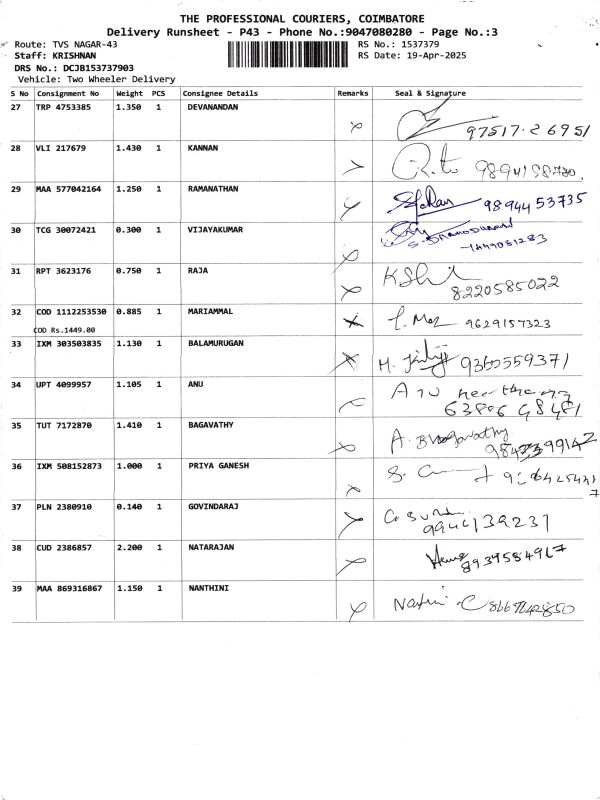 THE PROFESSIONAL COURIERS, COIMBATORE
Delivery Runsheet - P43 - Phone No.:9047080280 - Page No.:3
Route: TVS NAGAR-43 RS No.: 1537379
Staff: KRISHNAN RS Date: 19-Apr-2025
DRS No.: DCJB153737903
Vehicle: Two Wheeler Delivery
S No Consignment No Weight PCS Consignee Details Remarks Seal & Signature
27 TRP 4753385 1.350 1 DEVANANDAN
97517 26951
28 VLI 217679 1.430 1 KANNAN
29 MAA 577042164 1.250 1 RAMANATHAN
98944 53735
30 TCG 30072421 0.300 1 VIJAYAKUMAR
31 RPT 3623176 0.750 1 RAJA
8220585022
32 COD 1112253530 0.885 1 MARIAMMAL
9629157323
COD Rs.1449.00
33 IXM 303503835 1.130 1 BALAMURUGAN
9360559371
34 UPT 4099957 1.105 1 ANU
35 TUT 7172870 1.410 1 BAGAVATHY
A. Bhagavathy
36 IXM 508152873 1.000 1 PRIYA GANESH
37 PLN 2380910 0.140 1 GOVINDARAJ
38 CUD 2386857 2.200 1 NATARAJAN
8939584967
39 MAA 869316867 1.150 1 NANTHINI